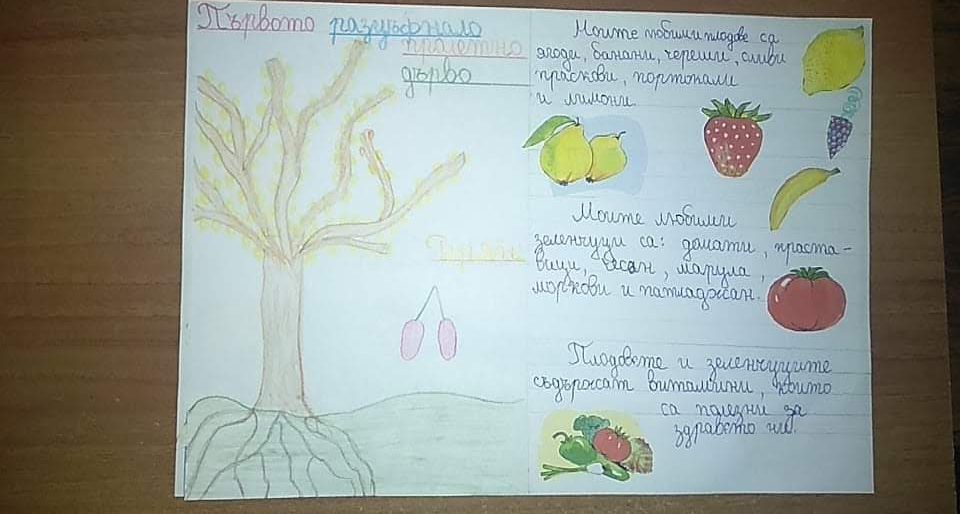 Първото разцъфнало
пролетно
дърво
Дрян
Моите любими плодове са
ягоди, банани, череши, сливи
праскови, портокали
и лимони.
Моите любими
зеленчуци са: домати, краста-
вици, чесън, марула,
моркови и патладжан.
Плодовете и зеленчуците
съдържат витамини, които
са полезни за
здравето ни.